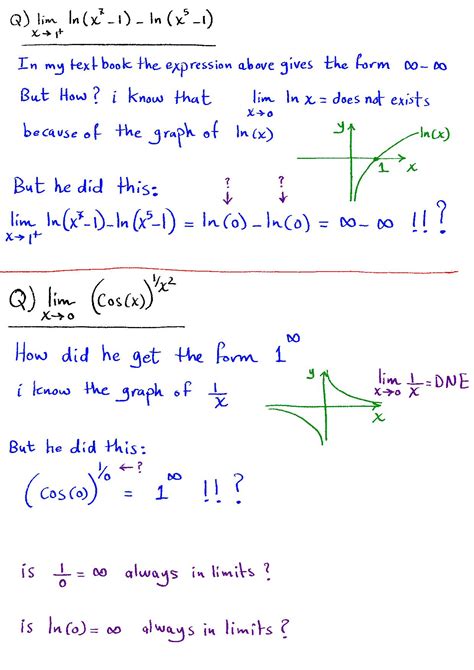 Q) lim ln(x⁷-1) - ln(x⁵-1)
x→1⁺
In my textbook the expression above gives the form ∞-∞
But How? i know that lim ln x = does not exists
x→0
because of the graph of ln(x)
y
ln(x)
1 x
But he did this: ? ?
lim ln(x⁷-1)-ln(x⁵-1) = ln(0) - ln(0) = ∞ - ∞ !! ?
x→1⁺
Q) lim (cos(x))^1/x²
x→0
How did he get the form 1^∞
i know the graph of 1/x
y
x
lim 1/x = DNE
x→0
But he did this:
(cos(0))^1/0 ←? = 1^∞ !! ?
is 1/0 = ∞ always in limits ?
is ln(0) = ∞ always in limits ?